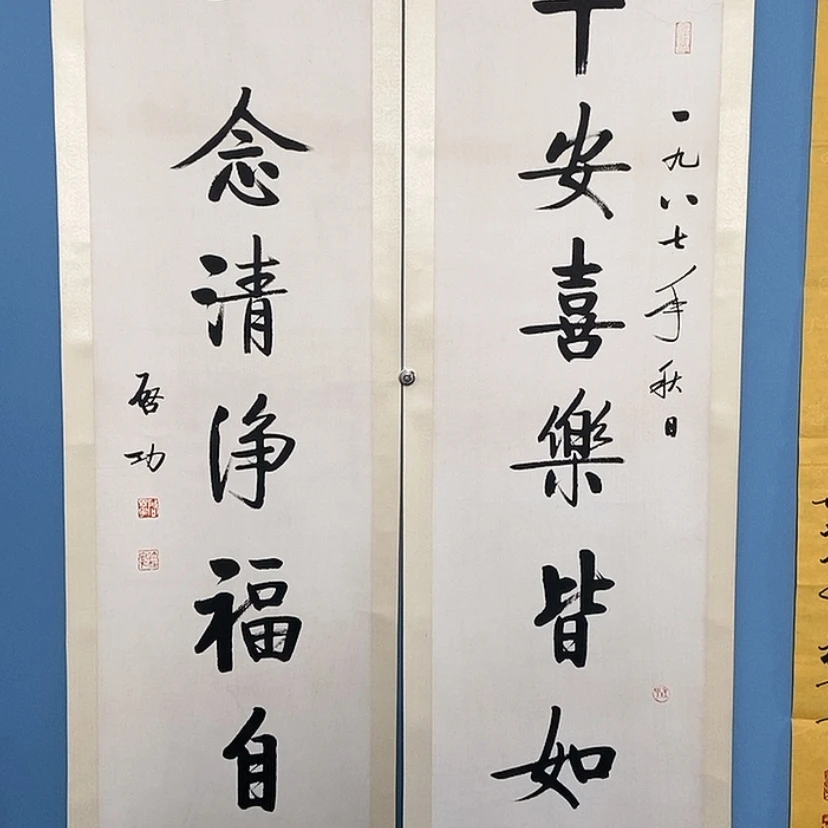 一九八七年秋日
安喜樂皆如
念清浄福自
啓功